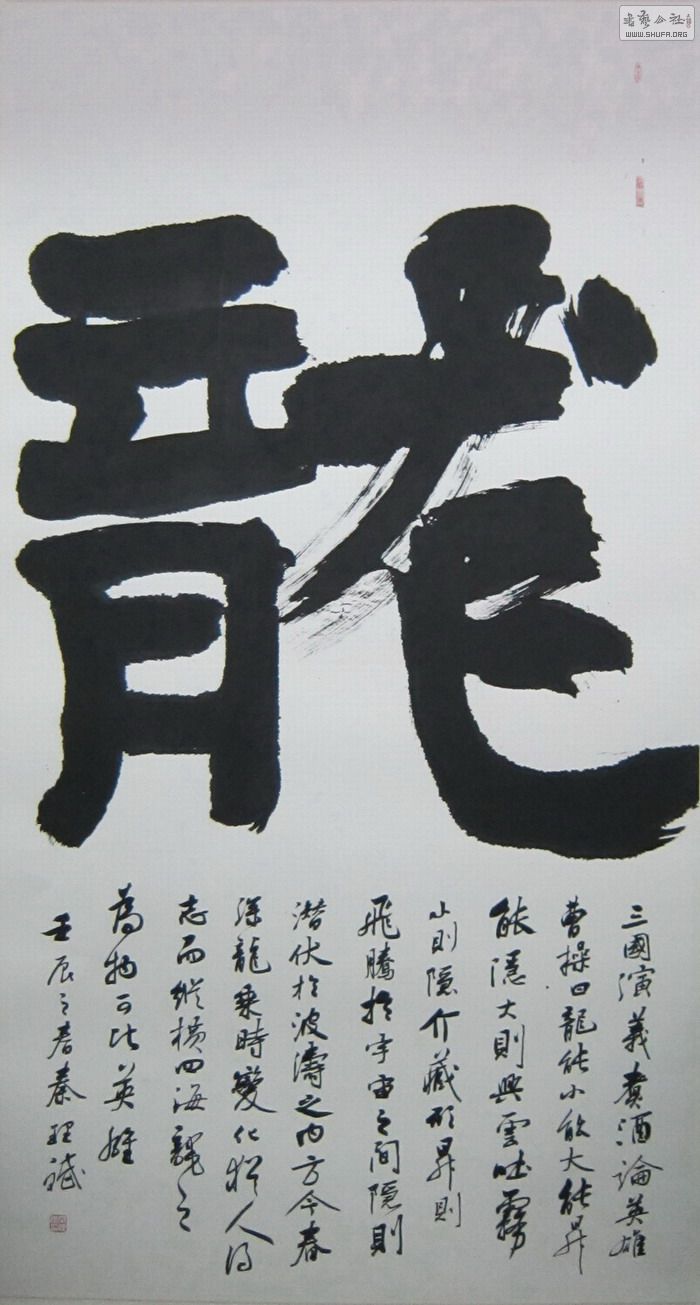 書藝公社
WWW.SHUFA.ORG
龍
三國演義煮酒論英雄
曹操曰龍能小能大能昇
能隱大則興雲吐霧
小則隱介藏形昇則
飛騰於宇宙之间隱則
潜伏於波濤之内方今春
深龍乘時變化猶人得
志而縱横四海龍之
為物可比英雄
壬辰之春秦理斌